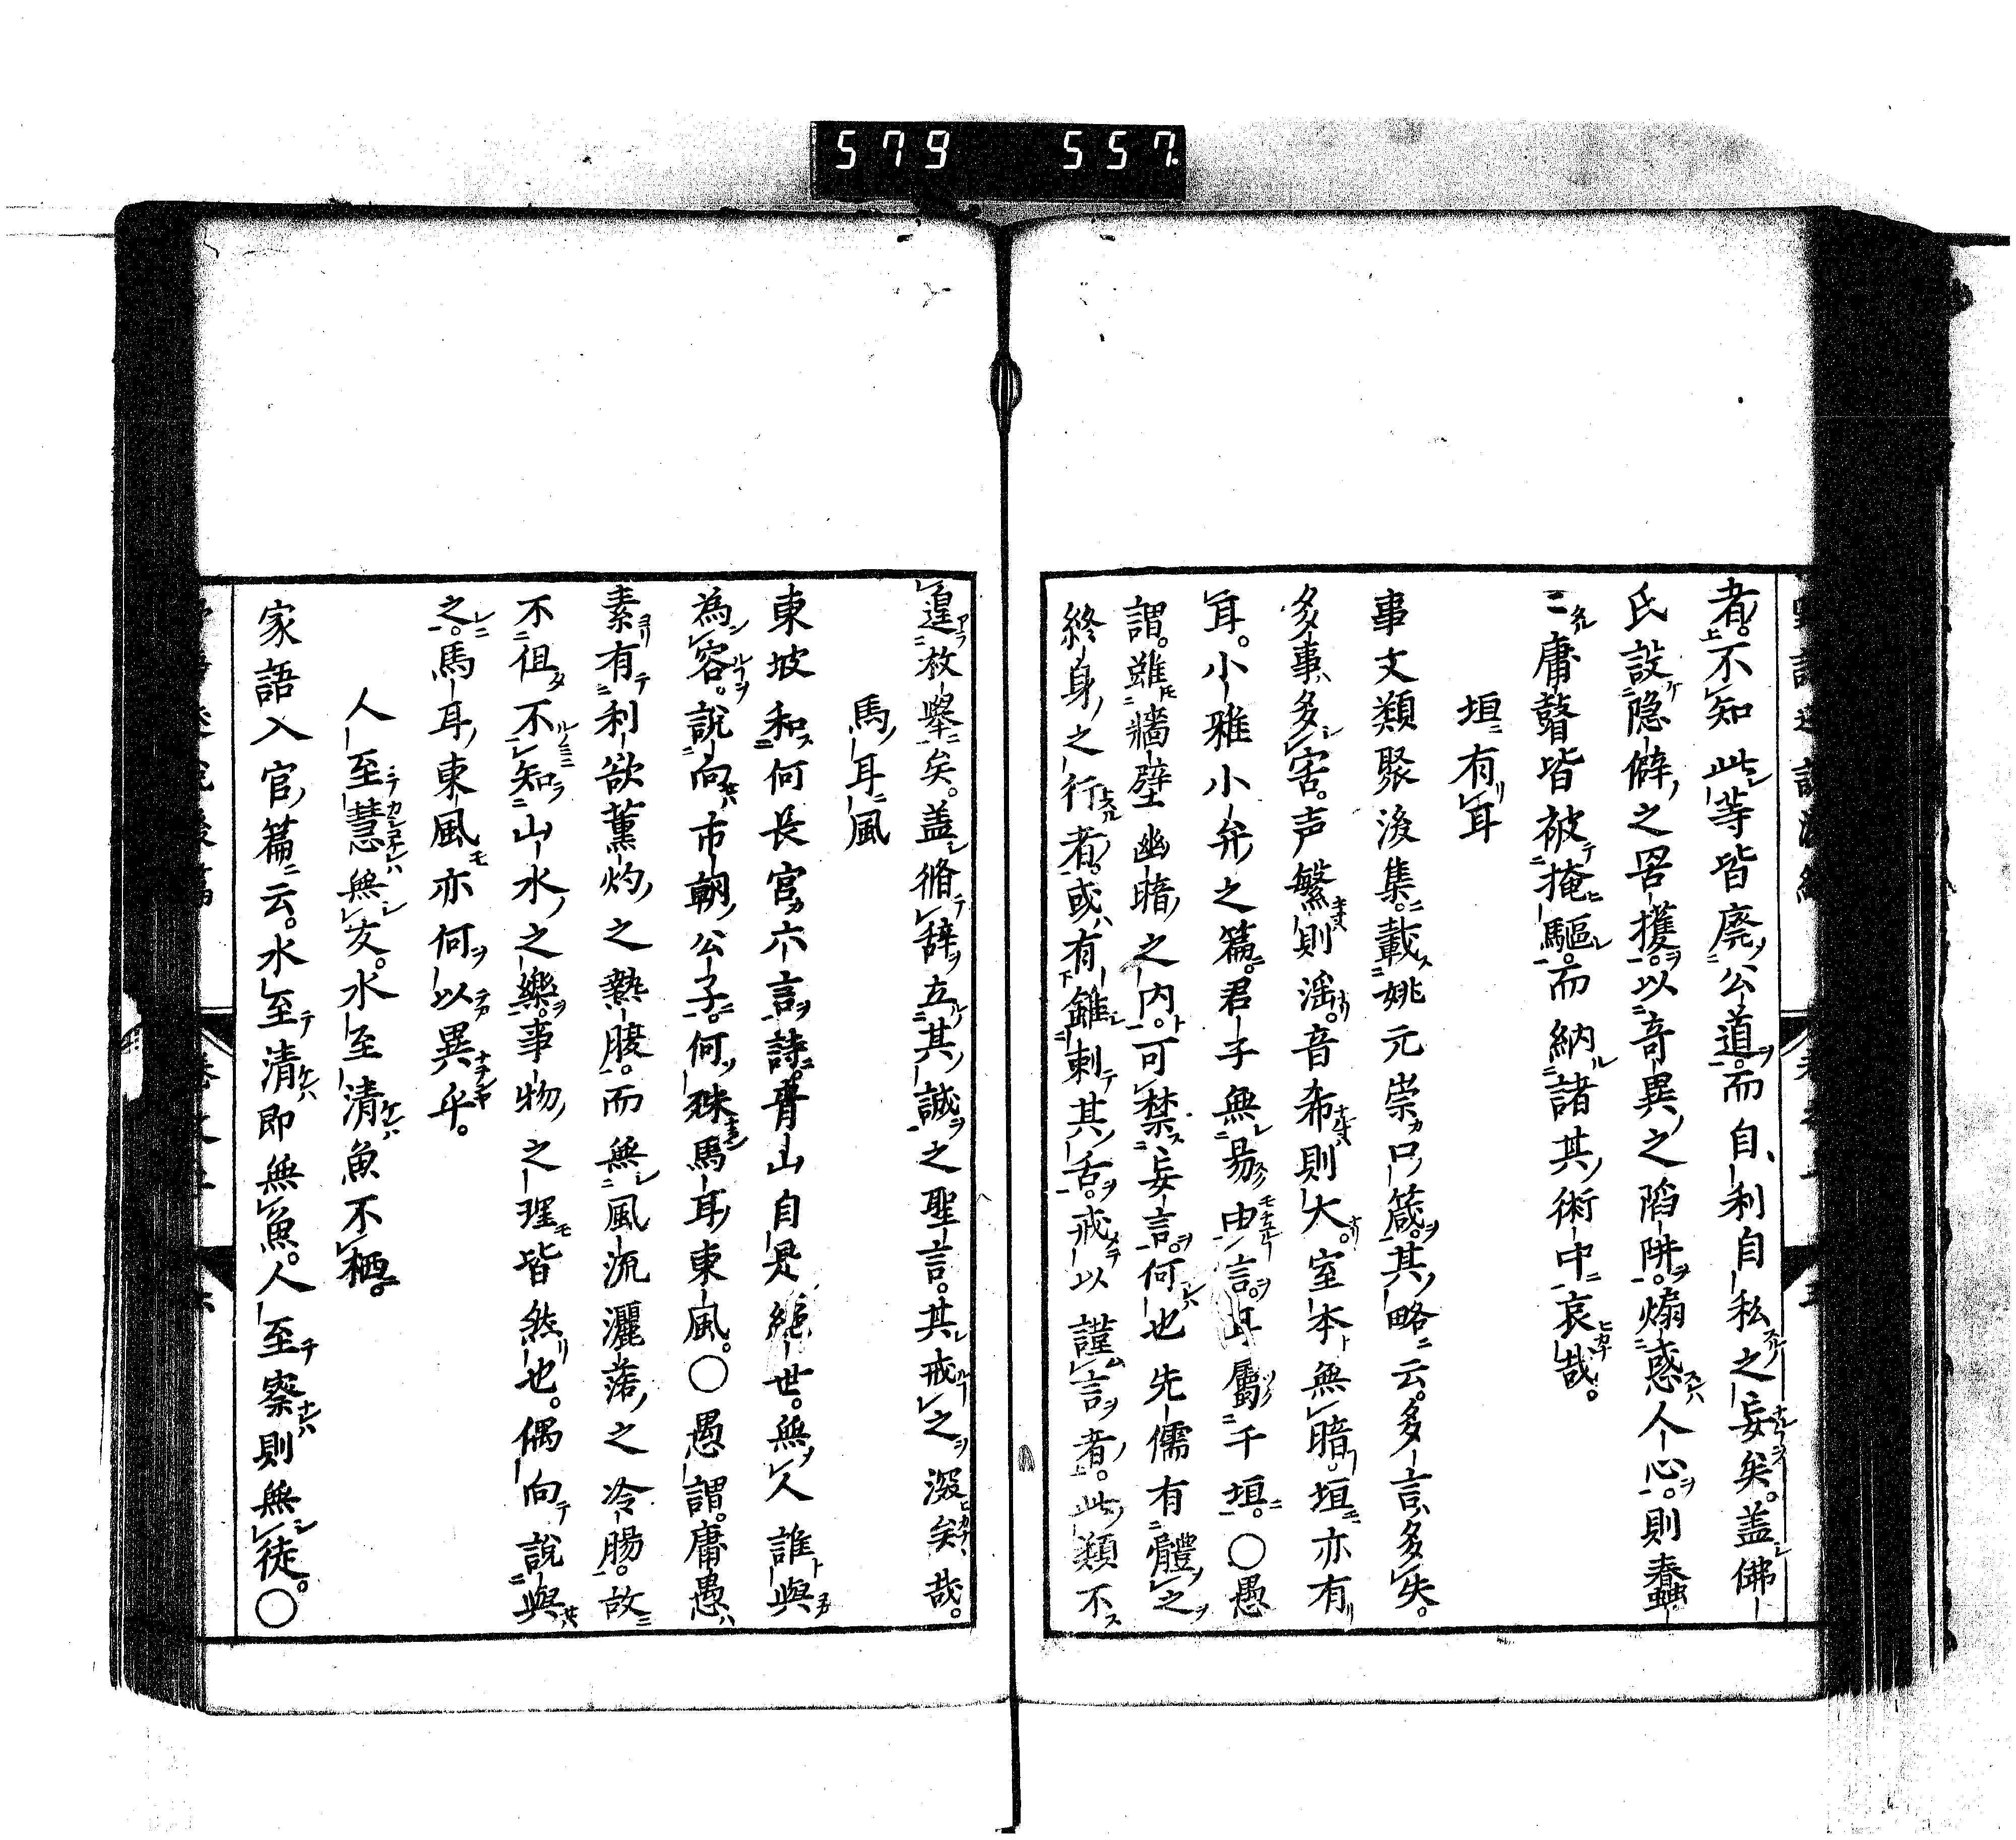 579 557
者不知此等皆廃公道而自利自私之妄矣蓋佛
氏設隠僻之罟擭以奇異之陷阱煽惑人心則蠢
〻庸瞽皆被掩驅而納諸其術中哀哉
垣有耳
事文類聚後集載姚元崇口箴其略云多言多失
多事多害声繁則淫音希則大室本無暗垣亦有
耳小雅小弁之篇君子無易由言耳属于垣〇愚
謂雖牆壁幽暗之内可禁妄言何也先儒有體之
終身之行者或有錐刺其舌戒以謹言者此類不
遑枚擧矣蓋脩辞立其誠之聖言其戒之深矣哉
馬耳風
東坡和何長官六言詩青山自是絶世無人誰與
為容説向市朝公子何殊馬耳東風〇愚謂庸愚
素有利欲薫灼之熱腹而無風流灑落之冷腸故
不徂不知山水之樂事物之理皆然也偶向説與
之馬耳東風亦何以異乎
人至慧無友水至清魚不栖
家語入官篇云水至清即無魚人至察則無徒〇